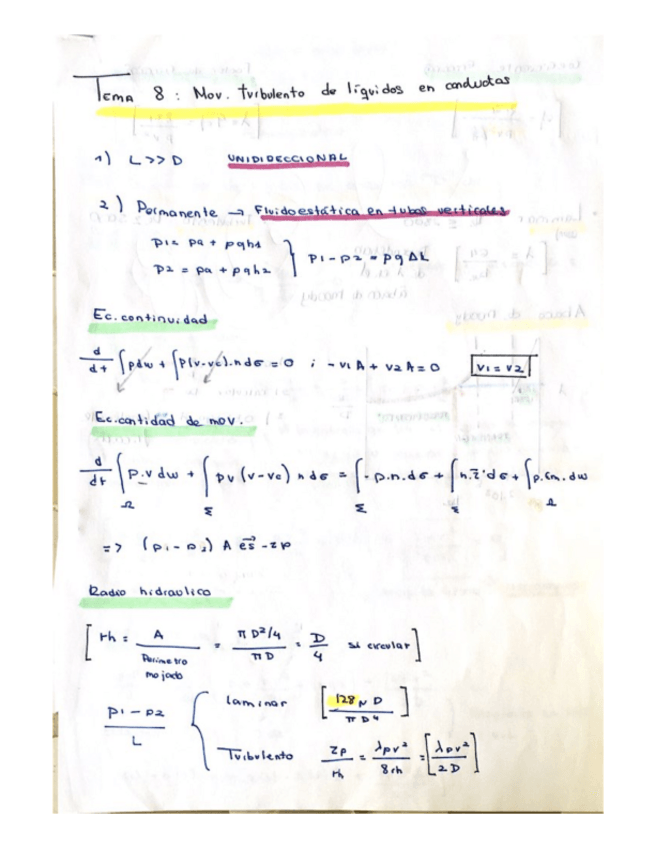 TEMA 8 : Mov. turbulento de líquidos en conductas
1) L >> D UNIDIDECCIONAL
2) Permanente → Fluidoestática en tubos verticales
p1 = pa + ρgh1
p2 = pa + ρgh2 } p1 - p2 = ρgΔL
Ec. continuidad
d/dt ∫ρdω + ∫ρ(v-vc).ndσ = 0 ; -v1A + v2A = 0 v1 = v2
Ec. cantidad de mov.
d/dt ∫Ω ρ.v dω + ∫Σ ρv (v-vc) n dσ = ∫Σ -p.n.dσ + ∫Σ n.τ̄'dσ + ∫Ω ρ.fm.dω
=> (p1 - p2) A es - τp
Radio hidraulico
[ rh = A / Perimetro mojado = πD²/4 / πD = D/4 si circular ]
p1 - p2 / L { laminar [ 128 μ D / πD⁴ ]
Turbulento τp / rh = λρv² / 8rh = [ λρv² / 2D ]